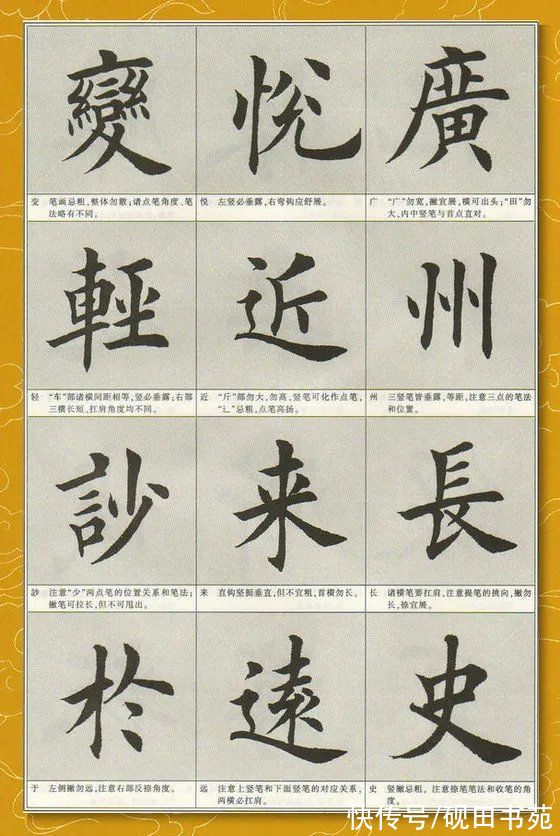 變
悦
廣
变 笔画忌粗,整体勿散;诸点笔角度、笔
法略有不同。
悦 左竖必垂露,右弯钩应舒展。
广 “广”勿宽,撇宜展,横可出头;“田”勿
大,内中竖笔与首点直对。
輕
近
州
轻 “车”部诸横间距相等,竖必垂露;右部
三横长短、扛肩角度均不同。
近 “斤”部勿大,勿高,竖笔可化作点笔,
“辶”忌粗,点笔高扬。
州 三竖笔皆垂露,等距,注意三点的笔法
和位置。
訬
来
長
訬 注意“少”两点笔的位置关系和笔法;
撇笔可拉长,但不可甩出。
来 直钩竖挺垂直,但不宜粗,首横勿长。
长 诸横笔要扛肩,注意提笔的挑向,撇勿
长,捺宜展。
於
遠
史
于 左侧撇勿远,注意右部反捺角度。
远 注意上竖笔和下面竖笔的对应关系,
两横必扛肩。
史 竖撇忌粗,注意捺笔笔法和收笔的角
度。
快传号/砚田书苑